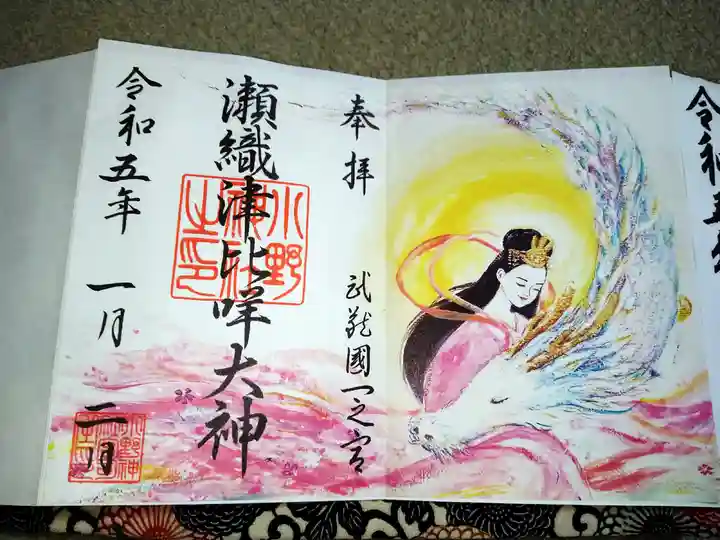 奉拝
武蔵國一之宮
瀬織津比咩大神
小野神社之印
令和五年 一月 二日
小野神
令和五年